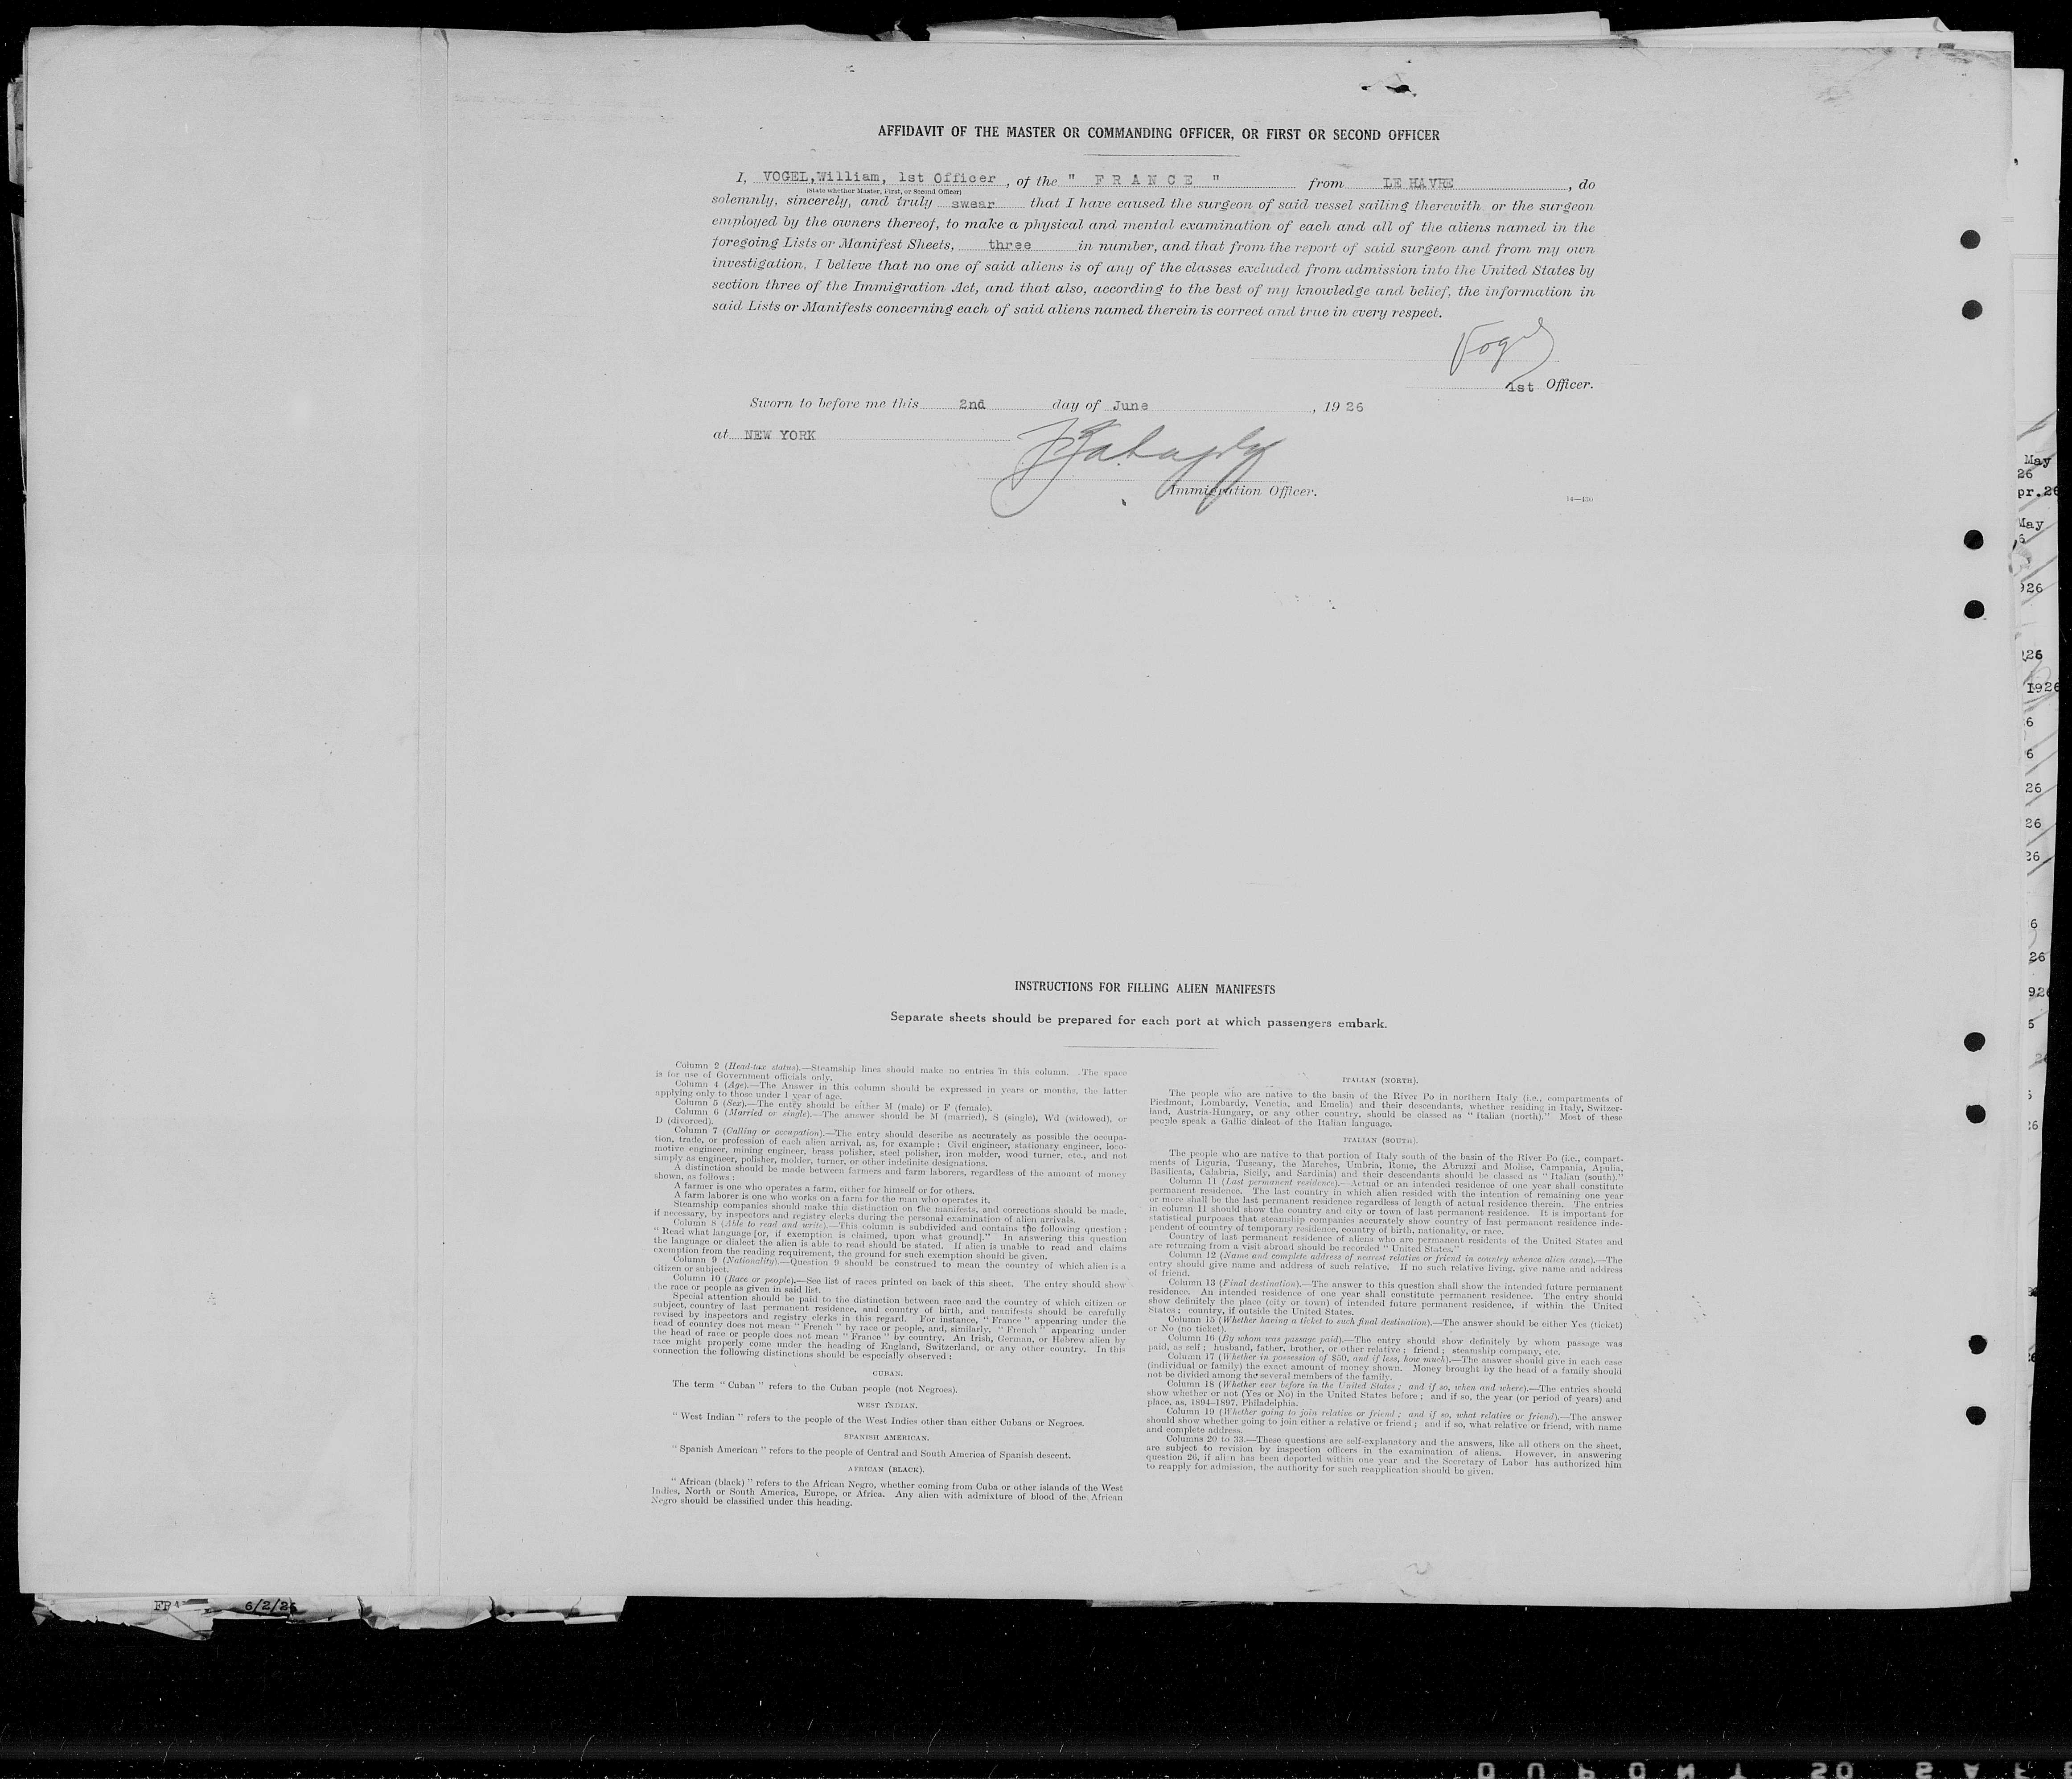 AFFIDAVIT OF THE MASTER OR COMMANDING OFFICER, OR FIRST OR SECOND OFFICER
I, VOGEL, William, 1st Officer, of the " F R A N C E " from LE HAVRE, do
(State whether Master, First, or Second Officer)
solemnly, sincerely, and truly swear that I have caused the surgeon of said vessel sailing therewith or the surgeon
employed by the owners thereof, to make a physical and mental examination of each and all of the aliens named in the
foregoing Lists or Manifest Sheets, three in number, and that from the report of said surgeon and from my own
investigation, I believe that no one of said aliens is of any of the classes excluded from admission into the United States by
section three of the Immigration Act, and that also, according to the best of my knowledge and belief, the information in
said Lists or Manifests concerning each of said aliens named therein is correct and true in every respect.
Vogel
1st Officer.
Sworn to before me this 2nd day of June, 1926
at NEW YORK
Immigration Officer.
14—430
INSTRUCTIONS FOR FILLING ALIEN MANIFESTS
Separate sheets should be prepared for each port at which passengers embark.
Column 2 (Head-tax status).—Steamship lines should make no entries in this column. The space
is for use of Government officials only.
Column 4 (Age).—The Answer in this column should be expressed in years or months, the latter
applying only to those under 1 year of age.
Column 5 (Sex).—The entry should be either M (male) or F (female).
Column 6 (Married or single).—The answer should be M (married), S (single), Wd (widowed), or
D (divorced).
Column 7 (Calling or occupation).—The entry should describe as accurately as possible the occupa-
tion, trade, or profession of each alien arrival, as, for example: Civil engineer, stationary engineer, loco-
motive engineer, mining engineer, brass polisher, steel polisher, iron molder, wood turner, etc., and not
simply as engineer, polisher, molder, turner, or other indefinite designations.
A distinction should be made between farmers and farm laborers, regardless of the amount of money
shown, as follows:
A farmer is one who operates a farm, either for himself or for others.
A farm laborer is one who works on a farm for the man who operates it.
Steamship companies should make this distinction on the manifests, and corrections should be made,
if necessary, by inspectors and registry clerks during the personal examination of alien arrivals.
Column 8 (Able to read and write).—This column is subdivided and contains the following question:
"Read what language [or, if exemption is claimed, upon what ground]." In answering this question
the language or dialect the alien is able to read should be stated. If alien is unable to read and claims
exemption from the reading requirement, the ground for such exemption should be given.
Column 9 (Nationality).—Question 9 should be construed to mean the country of which alien is a
citizen or subject.
Column 10 (Race or people).—See list of races printed on back of this sheet. The entry should show
the race or people as given in said list.
Special attention should be paid to the distinction between race and the country of which citizen or
subject, country of last permanent residence, and country of birth, and manifests should be carefully
revised by inspectors and registry clerks in this regard. For instance, "France" appearing under the
head of country does not mean "French" by race or people, and, similarly, "French" appearing under
the head of race or people does not mean "France" by country. An Irish, German, or Hebrew alien by
race might properly come under the heading of England, Switzerland, or any other country. In this
connection the following distinctions should be especially observed:
CUBAN.
The term "Cuban" refers to the Cuban people (not Negroes).
WEST INDIAN.
"West Indian" refers to the people of the West Indies other than either Cubans or Negroes.
SPANISH AMERICAN.
"Spanish American" refers to the people of Central and South America of Spanish descent.
AFRICAN (BLACK).
"African (black)" refers to the African Negro, whether coming from Cuba or other islands of the West
Indies, North or South America, Europe, or Africa. Any alien with admixture of blood of the African
Negro should be classified under this heading.
ITALIAN (NORTH).
The people who are native to the basin of the River Po in northern Italy (i.e., compartments of
Piedmont, Lombardy, Venetia, and Emelia) and their descendants, whether residing in Italy, Switzer-
land, Austria-Hungary, or any other country, should be classed as "Italian (north)." Most of these
people speak a Gallic dialect of the Italian language.
ITALIAN (SOUTH).
The people who are native to that portion of Italy south of the basin of the River Po (i.e., compart-
ments of Liguria, Tuscany, the Marches, Umbria, Rome, the Abruzzi and Molise, Campania, Apulia,
Basilicata, Calabria, Sicily, and Sardinia) and their descendants should be classed as "Italian (south)."
Column 11 (Last permanent residence).—Actual or an intended residence of one year shall constitute
permanent residence. The last country in which alien resided with the intention of remaining one year
or more shall be the last permanent residence regardless of length of actual residence therein. The entries
in column 11 should show the country and city or town of last permanent residence. It is important for
statistical purposes that steamship companies accurately show country of last permanent residence inde-
pendent of country of temporary residence, country of birth, nationality, or race.
Country of last permanent residence of aliens who are permanent residents of the United States and
are returning from a visit abroad should be recorded "United States."
Column 12 (Name and complete address of nearest relative or friend in country whence alien came).—The
entry should give name and address of such relative. If no such relative living, give name and address
of friend.
Column 13 (Final destination).—The answer to this question shall show the intended future permanent
residence. An intended residence of one year shall constitute permanent residence. The entry should
show definitely the place (city or town) of intended future permanent residence, if within the United
States; country, if outside the United States.
Column 15 (Whether having a ticket to such final destination).—The answer should be either Yes (ticket)
or No (no ticket).
Column 16 (By whom was passage paid).—The entry should show definitely by whom passage was
paid, as self; husband, father, brother, or other relative; friend; steamship company, etc.
Column 17 (Whether in possession of $50, and if less, how much).—The answer should give in each case
(individual or family) the exact amount of money shown. Money brought by the head of a family should
not be divided among the several members of the family.
Column 18 (Whether ever before in the United States; and if so, when and where).—The entries should
show whether or not (Yes or No) in the United States before; and if so, the year (or period of years) and
place, as, 1894–1897, Philadelphia.
Column 19 (Whether going to join relative or friend; and if so, what relative or friend).—The answer
should show whether going to join either a relative or friend; and if so, what relative or friend, with name
and complete address.
Columns 20 to 33.—These questions are self-explanatory and the answers, like all others on the sheet,
are subject to revision by inspection officers in the examination of aliens. However, in answering
question 26, if alien has been deported within one year and the Secretary of Labor has authorized him
to reapply for admission, the authority for such reapplication should be given.
6/2/26
May
26
pr.26
May
926
26
1926
6
6
26
26
26
6
26
926